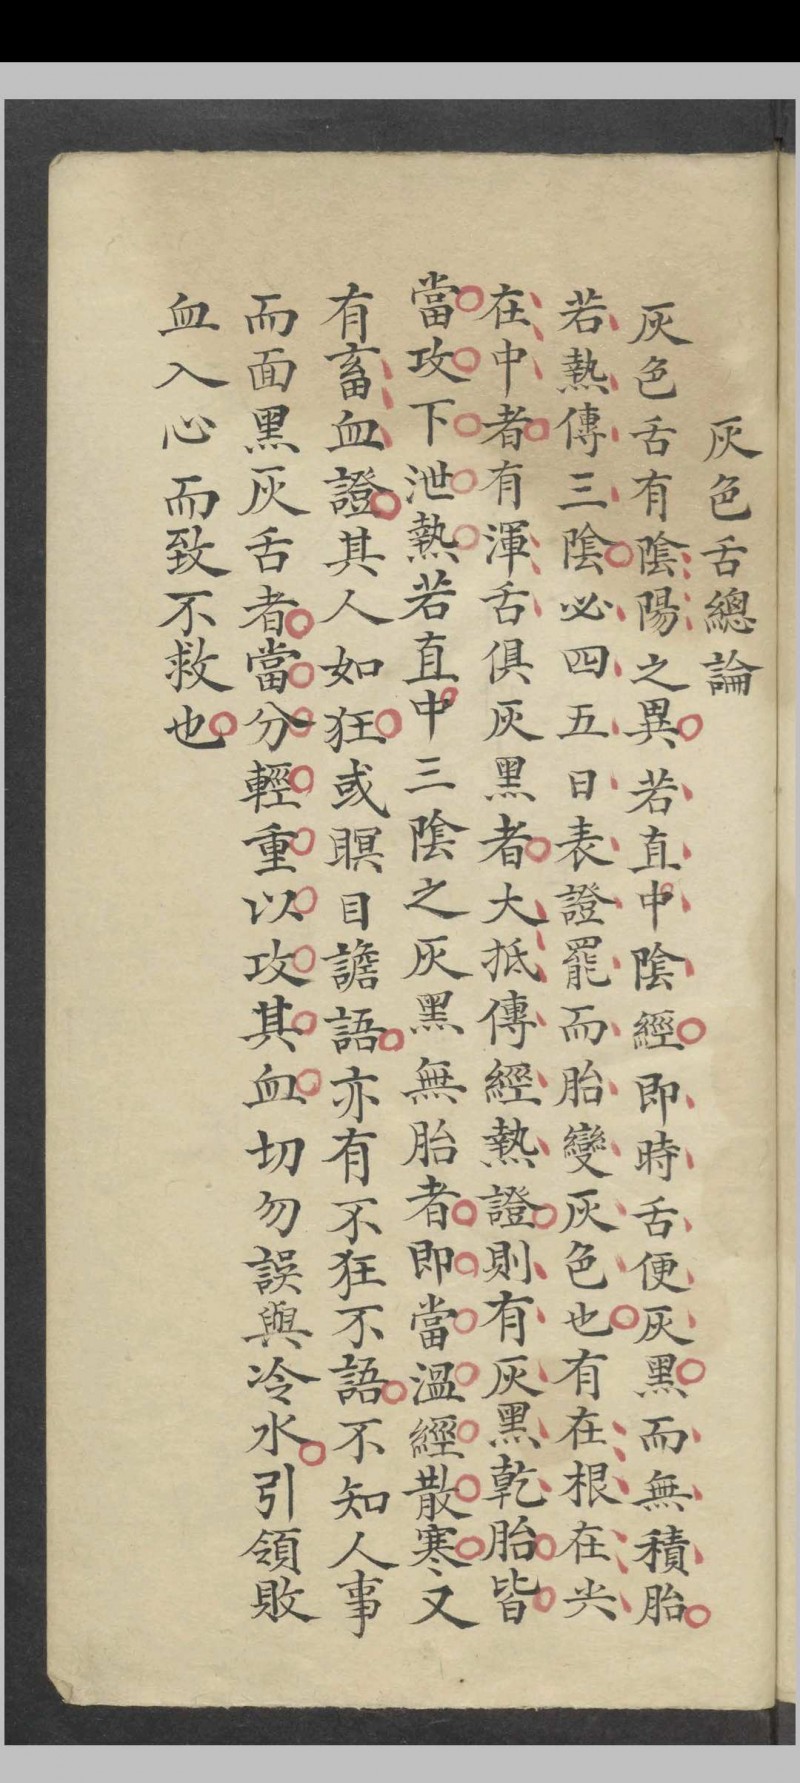 灰色舌總論
灰色舌有陰陽之異若直中陰經即時舌便灰黑而無積胎
若熱傳三陰必四五日表證罷而胎變灰色也有在根在尖
在中者有渾舌俱灰黑者大抵傳經熱證則有灰黑乾胎皆
當攻下泄熱若直中三陰之灰黑無胎者即當溫經散寒又
有畜血證其人如狂或瞑目譫語亦有不狂不語不知人事
而面黑灰舌者當分輕重以攻其血切勿誤與冷水引領敗
血入心而致不救也